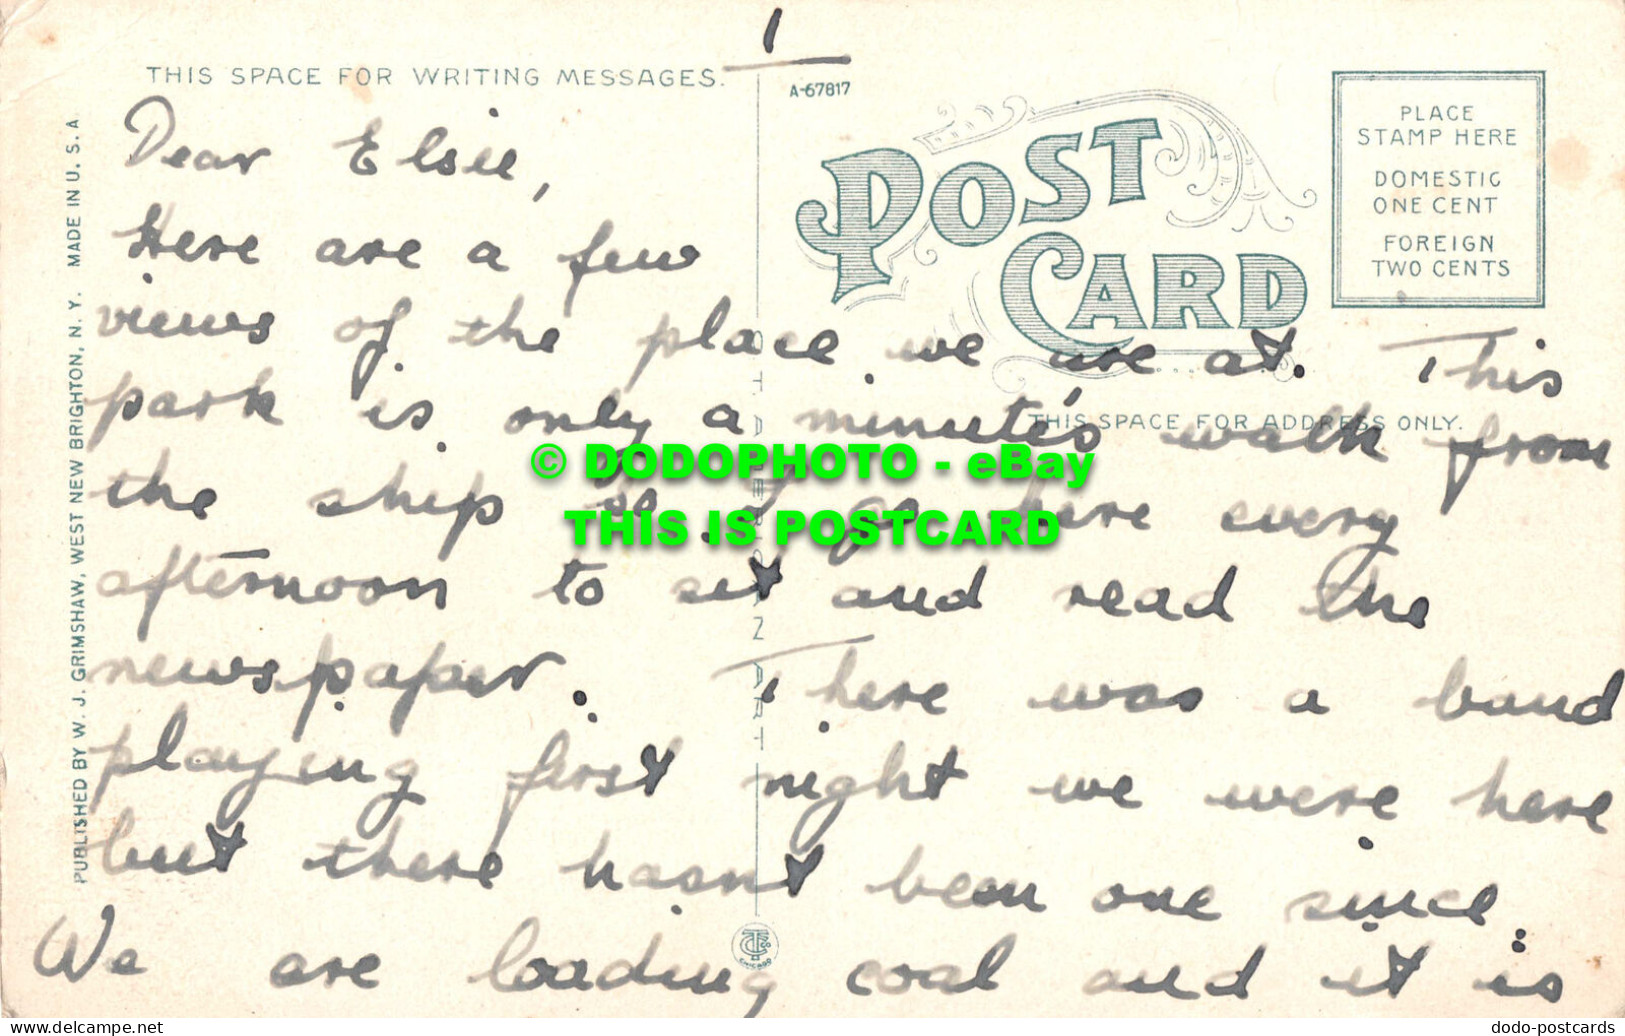 1
THIS SPACE FOR WRITING MESSAGES.
A-67817
POST
CARD
PLACE
STAMP HERE
DOMESTIC
ONE CENT
FOREIGN
TWO CENTS
THIS SPACE FOR ADDRESS ONLY.
PUBLISHED BY W. J. GRIMSHAW, WEST NEW BRIGHTON, N. Y. MADE IN U. S. A
Dear Elsie,
Here are a few
views of the place we are at. This
park is only a minute's walk from
the ship so I go there every
afternoon to set and read the
newspaper. There was a band
playing first night we were here
but there hasnt been one since.
We are loading coal and it is
CHICAGO
© DODOPHOTO - eBay
THIS IS POSTCARD
delcampe.net
dodo-postcards